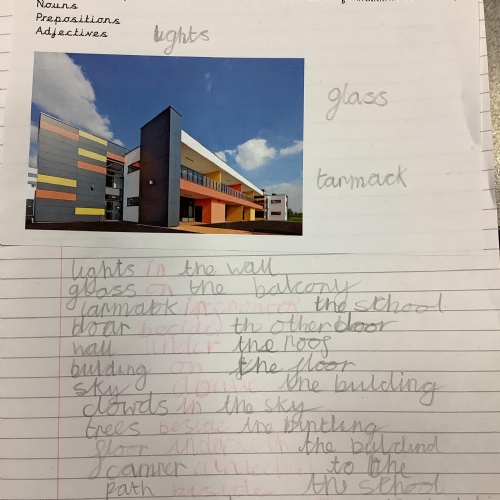 Nouns
Prepositions
Adjectives
lights
glass
tarmack
lights in the wall
glass on the balcony
tarmack the school
doar beside th other door
wall under the roof
building on the floor
sky above the building
clowds in the sky
trees beside the
floor underneath the
camer to the
path beside the school